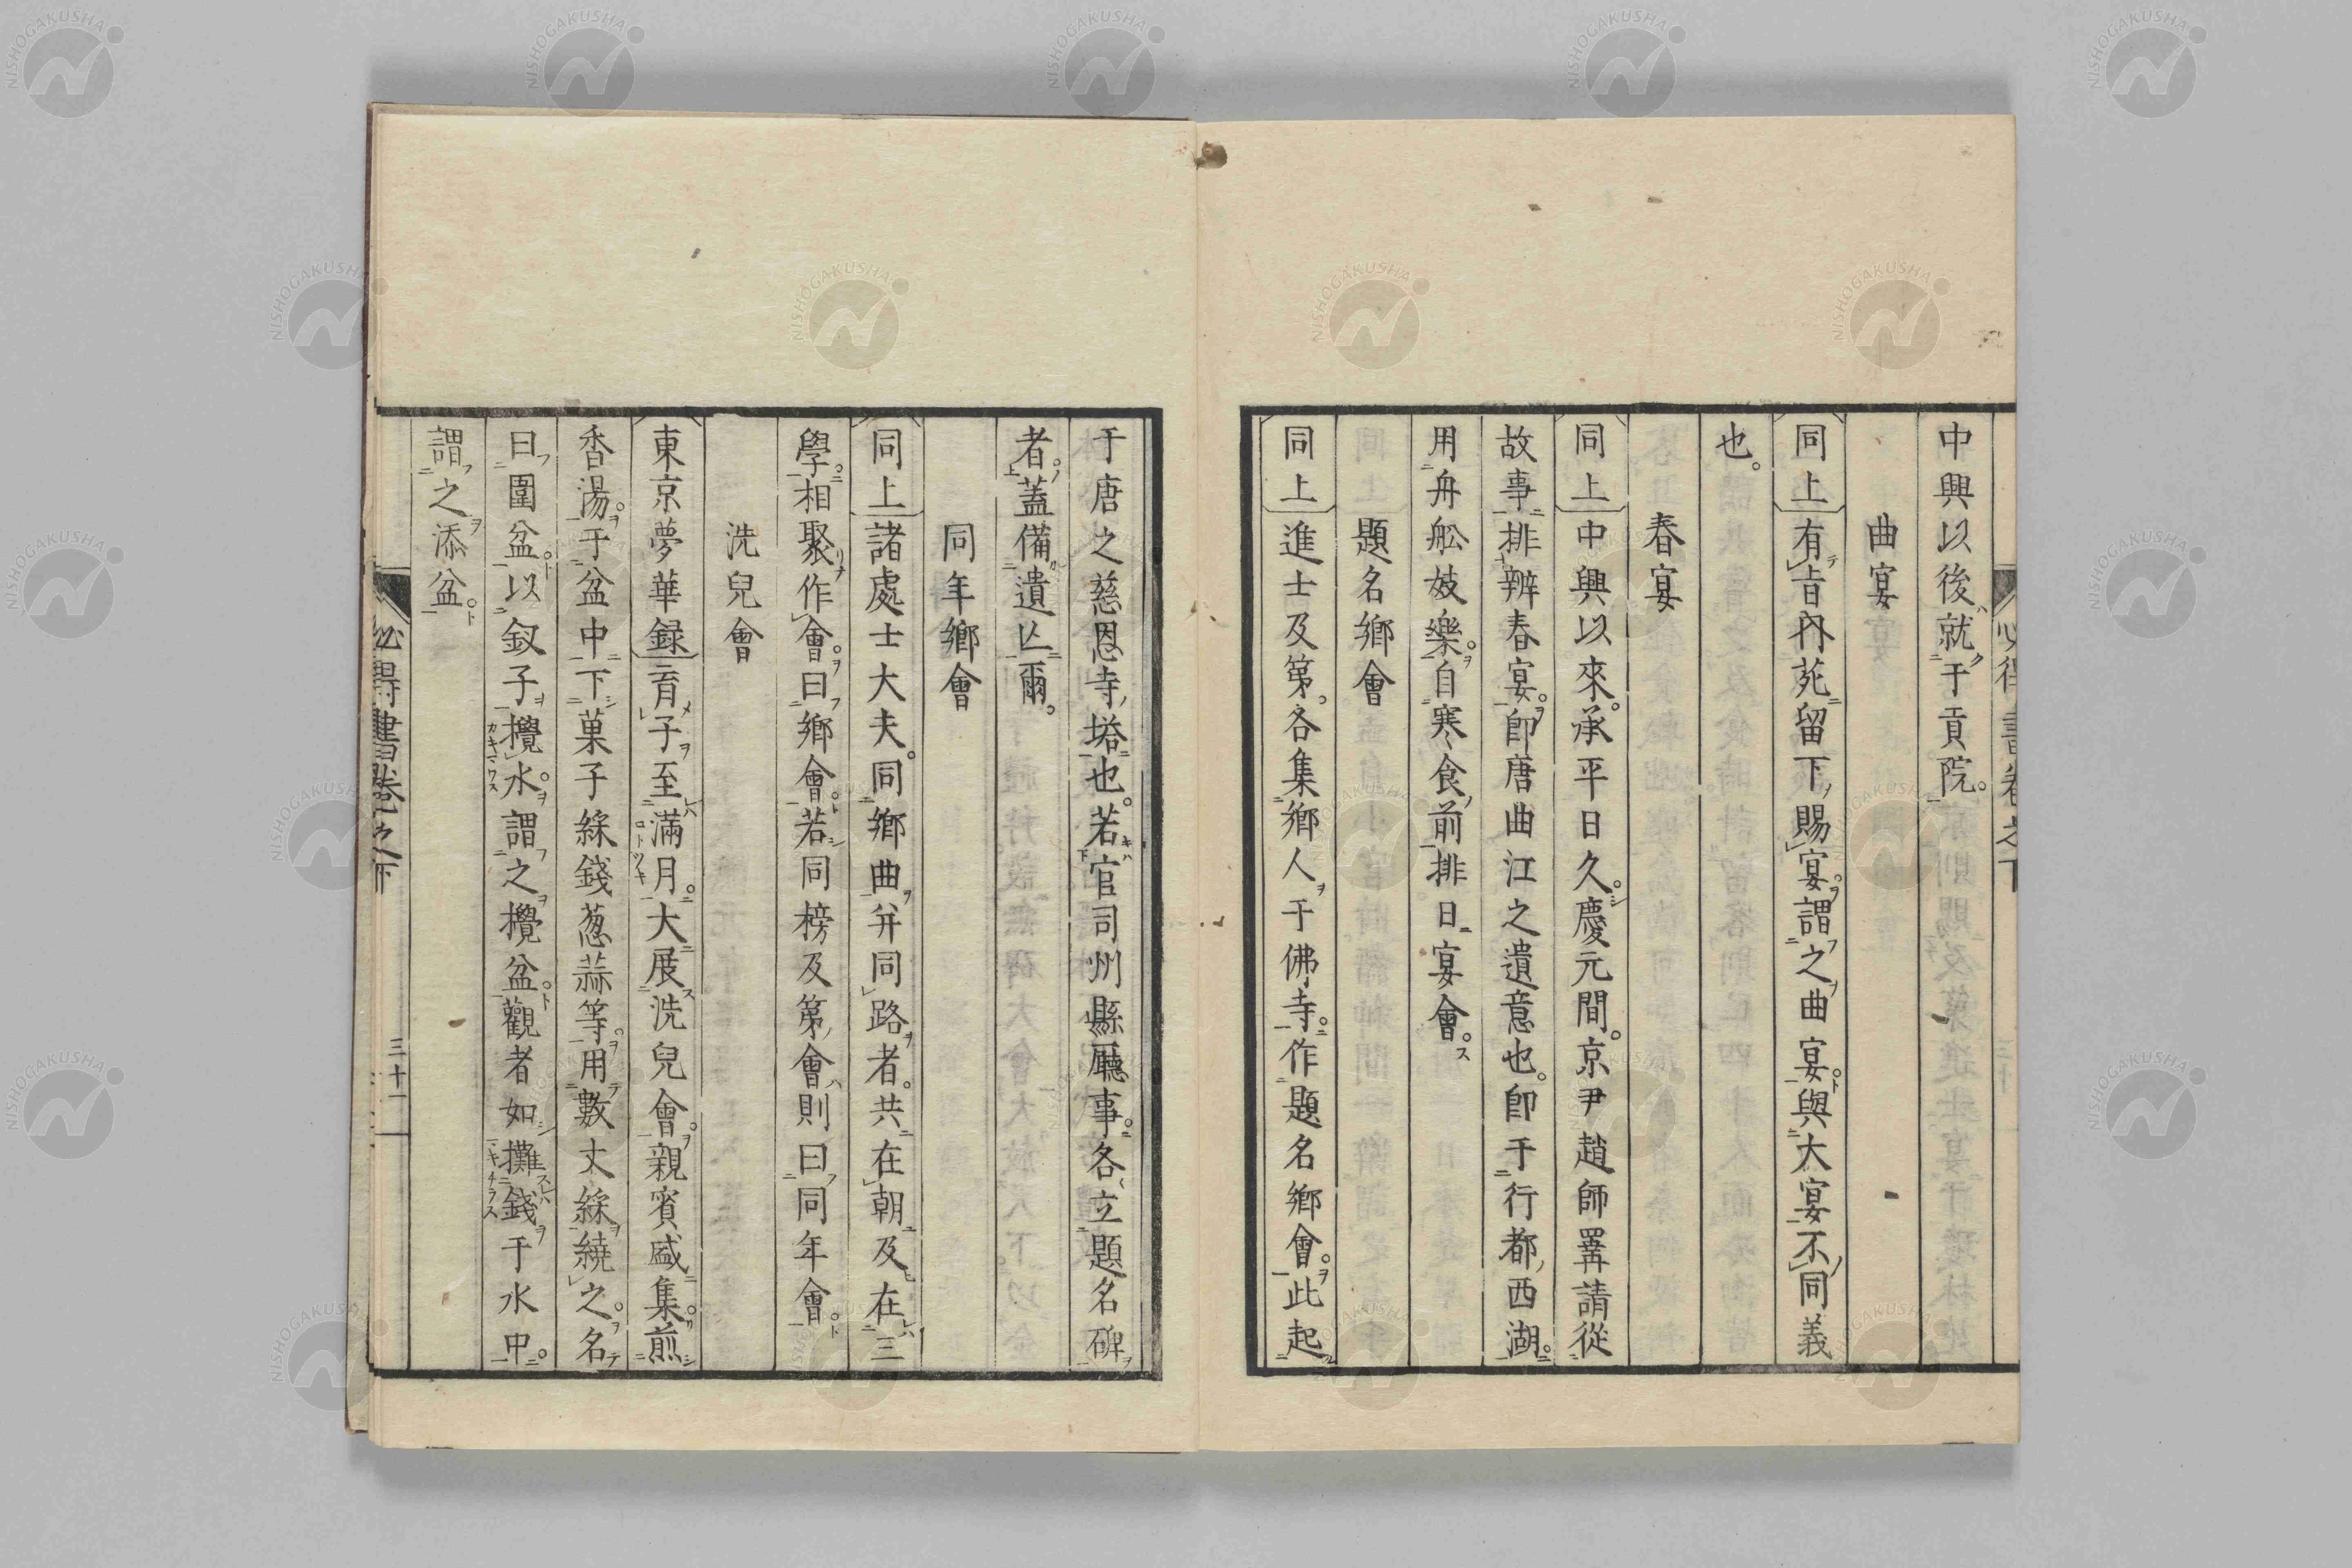 中興以後就于貢院。
曲宴
同上有旨內苑留下賜宴。謂之曲宴。與大宴不同義
也。
春宴
同上中興以來。承平日久。慶元間。京尹趙師羇請從
故事排辨春宴。卽唐曲江之遺意也。卽于行都西湖。
用舟舩妓樂。自寒食前排日宴會。
題名鄉會
同上進士及第。各集鄉人于佛寺。作題名鄉會。此起
于唐之慈恩寺塔也。若官司州縣廳事。各立題名碑
者。蓋備遺亾爾。
同年鄉會
同上諸處士大夫。同鄉曲幷同路者。共在朝及在三
學。相聚作會。曰鄉會。若同榜及第會則曰同年會。
洗兒會
東京夢華録育子至滿月。大展洗兒會。親賓盛集。煎
香湯。于盆中下菓子綵錢葱蒜等。用數丈綵繞之。名
曰圍盆。以釵子攪水。謂之攪盆。觀者如攤錢于水中。
謂之添盆。
必得書卷之下
三十一